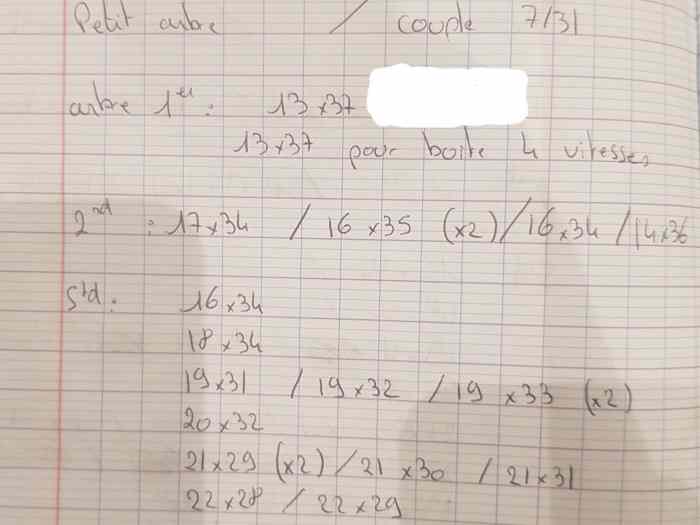 Petit arbre / couple 7/31
arbre 1er : 13x37
13x37 pour boite 4 vitesses
2nd : 17x34 / 16x35 (x2) / 16x34 / 14x36
Std : 16x34
18x34
19x31 / 19x32 / 19x33 (x2)
20x32
21x29 (x2) / 21x30 / 21x31
22x28 / 22x29